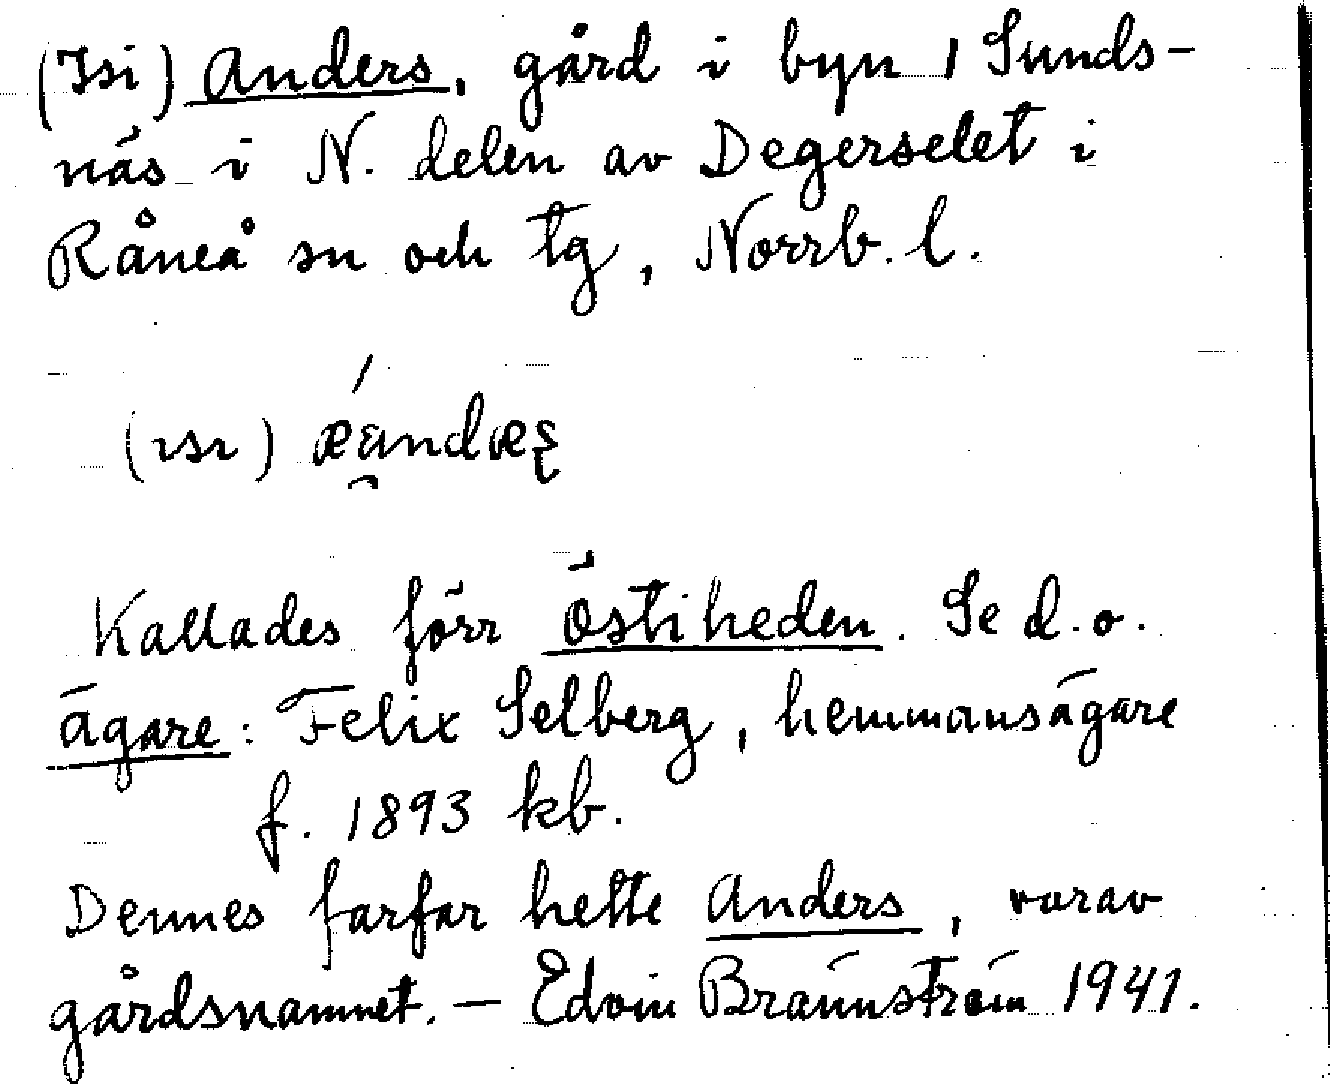 (Isi) Anders, gård i byn 1 Sunds-
näs i N. delen av Degerselet i
Råneå sn och tg, Norrb. l.
(ısı)
Kallades förr Östiheden. Se d. o.
ägare: Felix Selberg, hemmansägare
f. 1893 kb.
Dennes farfar hette Anders, varav
gårdsnamnet. – Edvin Brännström 1941.